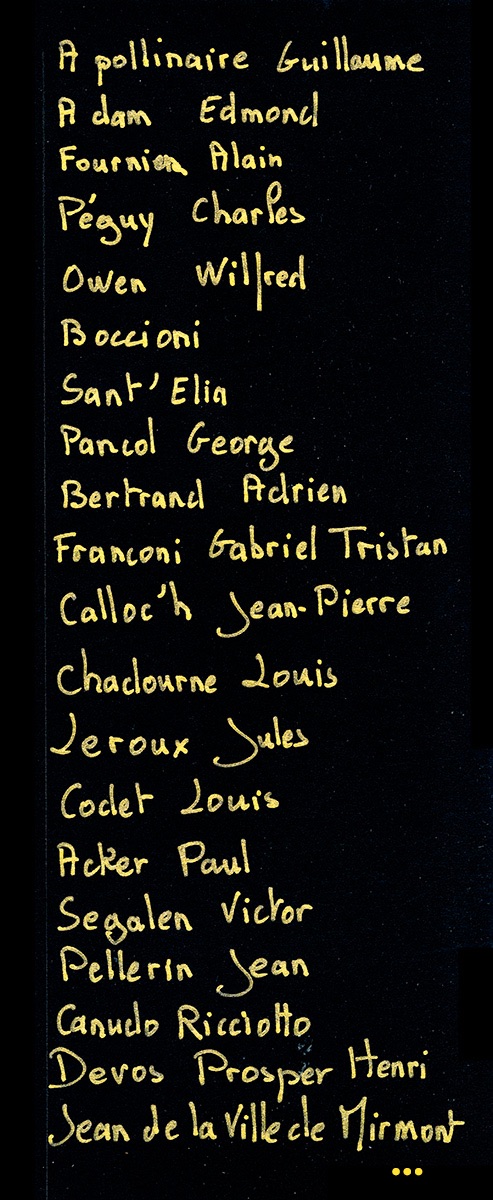 Apollinaire Guillaume
Adam Edmond
Fournier Alain
Péguy Charles
Owen Wilfred
Boccioni
Sant'Elia
Pancol George
Bertrand Adrien
Franconi Gabriel Tristan
Calloc'h Jean-Pierre
Chadourne Louis
Leroux Jules
Codet Louis
Acker Paul
Segalen Victor
Pellerin Jean
Canudo Ricciotto
Devos Prosper Henri
Jean de la Ville de Mirmont
...